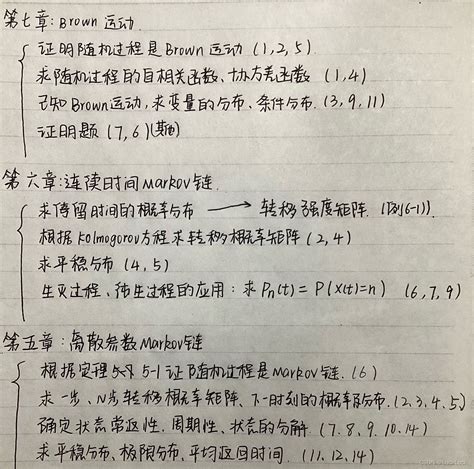 第七章: Brown 运动
证明随机过程是Brown 运动 (1,2,5)
求随机过程的自相关函数、协方差函数 (1,4)
已知Brown运动,求变量的分布、条件分布. (3,9,11)
证明题 (7,6)
第六章:连续时间Markov链.
求停留时间的概率分布 → 转移强度矩阵. (1,3(6-1))
根据Kolmogorov方程求转移概率矩阵 (2,4)
求平稳分布 (4,5)
生灭过程、纯生过程的应用: 求Pn(t)=P(X(t)=n) (6,7,9)
第五章: 离散参数Markov链
根据定理 5-1 证随机过程是Markov链. (6)
求一步、N步转移概率矩阵、下一时刻的概率分布(2.3.4.5)
确定状态常返性、周期性、状态的分解 (7.8.9.10.14)
求平稳分布、极限分布、平均返回时间. (11.12.14)